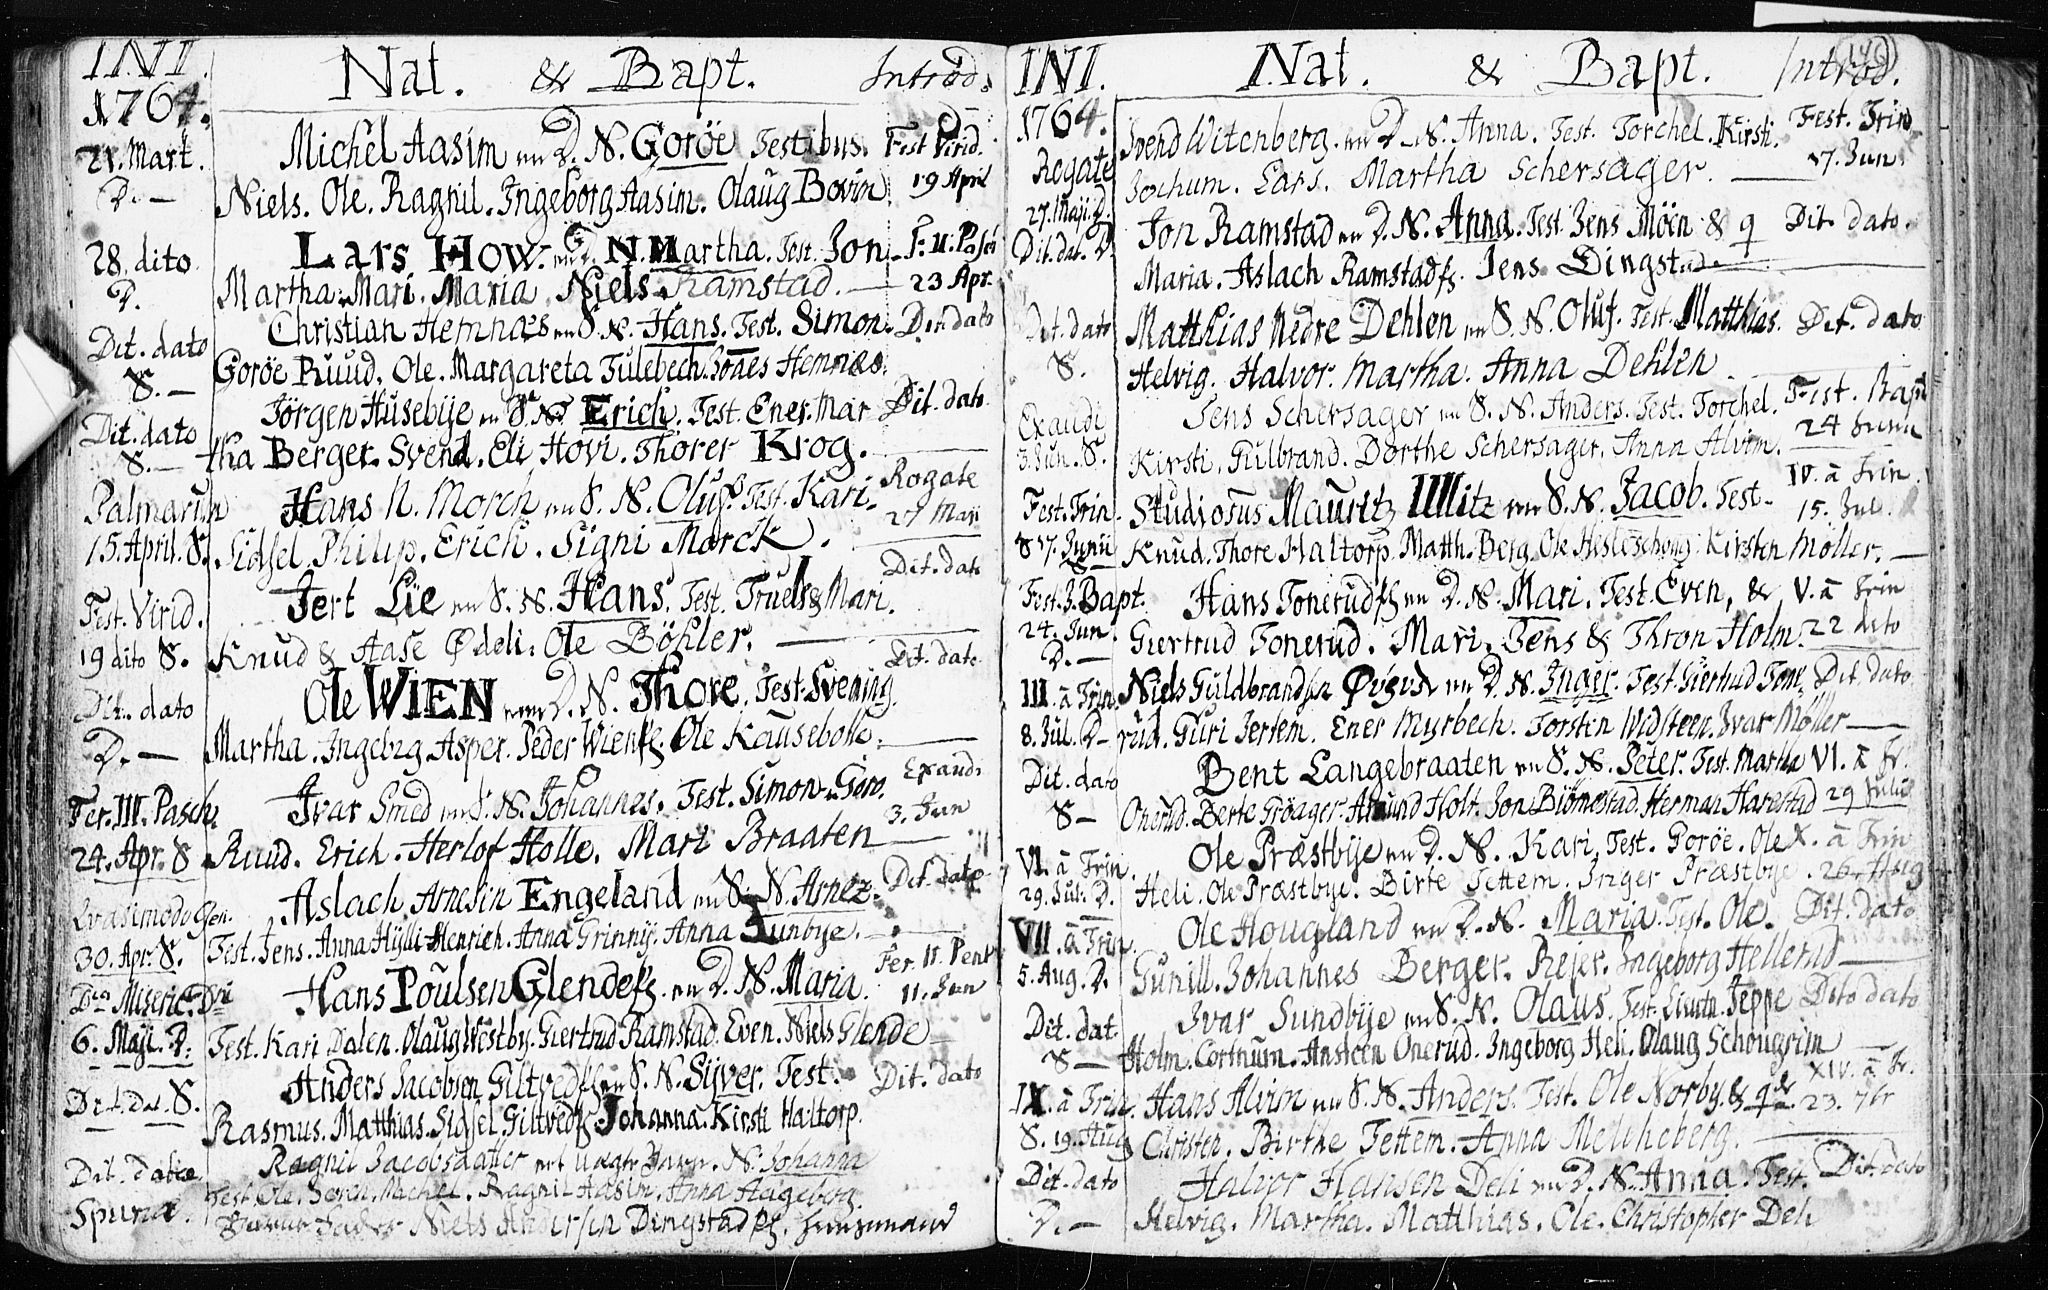 INI. Nat. & Bapt. Introd.
1764.
21. Mart. Michel Aasim en D. N. Goröe Testibus. Fest Virid.
D. — Niels. Ole. Ragnil. Ingeborg Aasim. Olaug Bovin. 19 April
28. dito Lars How. en D. N. Martha. Test. Jon. F. II. Pasch
D. Martha. Mari. Maria. Niels Ramstad. — 23 Apr.
Dit. dato Christian Hemnæs en S. N. Hans. Test. Simon. Dit dato
S. — Goröe Ruud. Ole. Margareta Tulebech. Hemnæs.
Dit. dato Jörgen Husebÿe en S. N. Erich. Test. Ener. Mar Dit. dato
S. — tha Berger. Svend. Eli Hovi. Thorer Krog. —
Palmarum Hans N. Morch en S. N. Oluf. Test. Kari. Rogate
15. April. S. Sidsel. Philip. Erich. Signi Morck. 27 Maii
Fest. Virid. Jert Lie en S. N. Hans. Test. Truels & Mari. Dit. dato
19 dito S. Knud & Aase Ødeli. Ole Böhler. —
Dit. dato Ole WIEN en D. N. Thore. Test. Svening. Dit. dato
D. — Martha. Ingebrg Asper. Peder Wiens. Ole Kausebolle. —
Fer. III. Pasch. Ivar Smed en S. N. Johannes. Test. Simon. Goro. Exaudi
24. Apr. S Ruud. Erich. Herlof Holle. Mari Braaten — 3. Jun
Qvasimodo Gen. Aslach Arnesin Engeland en S. N. Arne. Dit. dato
30. Apr. S. Test. Jens. Anna Hÿlli. Henrich. Anna Grinnÿ. Anna Sunbÿe. —
Dca Miseric. Dni Hans Poulsen Glende. en D. N. Maria. Fer. II. Pent
6. Maji. D. Test. Kari Dalen. Olaug Westby. Giertrud Ramstad. Even. Niels Glende 11. Jun
Dit. dat. S. Anders Jacobsen Giltved en S. N. Sijver. Test. Dit. dato
Rasmus. Matthias. Sidsel. Giltved. Johanna. Kirsti Haltorp.
Dit. dato Ragnil Jacobsdatter et uægte Barn. N. Johanna
Spuria. Test. Ole. Soren. Michel. Ragnil Aasim. Anna Aageberg.
Niels Andersen Dingstad
INI. Nat. & Bapt. Introd. 146
1764.
Rogate Svend Witenberg. en D. N. Anna. Test. Torchel. Kirsti. Fest. Trin
27. Maji. D. Jochum. Lars. Martha Schersager. — 17. Jun.
Dit. dat. D. Jon Ramstad en D. N. Anna. Test. Jens Möen & q Dit. dato.
Maria. Aslach Ramstad. Jens Dingstad.
Dit. dato Matthias Nedre Dehlen en S. N. Oluf. Test. Matthias. Dit. dato
S. Helvig. Halvor. Martha. Anna Dehlen
Exaudi Jens Schersager en S. N. Anders. Test. Torchel. Fest. Bapt
3. Jun. S. Kirsti. Gulbrand. Dorthe Schersager. Anna Alvim. 24 Junii
Fest. Trin. Studiosus Mauritz Willitz en S. N. Jacob. Test. IV. à Trin.
S 17. Junii Knud. Thore Haltorp. Matth. Berg. Ole Hesleschong. Kirsten Moller. — 15. Jul.
Fest. J. Bapt. Hans Tonerud en D. N. Mari. Test. Even, & V. à Trin
24. Jun. D. — Giertrud Tonerud. Mari. Jens & Thron Holm. 22 dito
III. à Trin. Niels Guldbrandsen en D. N. Inger. Test. Giertrud Tone Dit. dato
8. Jul. D — rud. Guri Jertem. Ener Myrbech. Torsten Widsteen. Ivar Møller —
Dit. dato Bent Langebraaten en S. N. Peter. Test. Martha VI. à Tr.
S — Onerud. Berte Gröager. Amund Holt. Jon Biönestad. Herman Harestad 29 Julii
VI. à Trin. Ole Præstbÿe en D. N. Kari. Test. Goröe. Ole X. à Trin
29. Jul. D. Heli. Ole Præstbye. Birte Tettem. Inger Præstbye. 26. Aug
VII. à Trin. Ole Hougland en D. N. Maria. Test. Ole. Dit. dato
5. Aug. D. Gunill. Johannes Berger. Rejer. Ingeborg Hellerud —
Dit. dat Ivar Sundbÿe en S. N. Olaus. Test. Jeppe Dito dato
S — Holm. Cortnum. Ansteen Onerud. Ingeborg Heli. Olaug Schougrim —
IX. à Trin. Hans Alvim en S. N. Anders. Test. Ole Norby. & XIV. à Tr.
S. 19. Aug Christen. Birthe Tettem. Anna Melcheberg. 23. 7br
Dit. dato Halvor Hansen Deli en D. N. Anna. Test. Dit. dato
D. — Helvig. Martha. Matthias. Ole. Christopher Deli